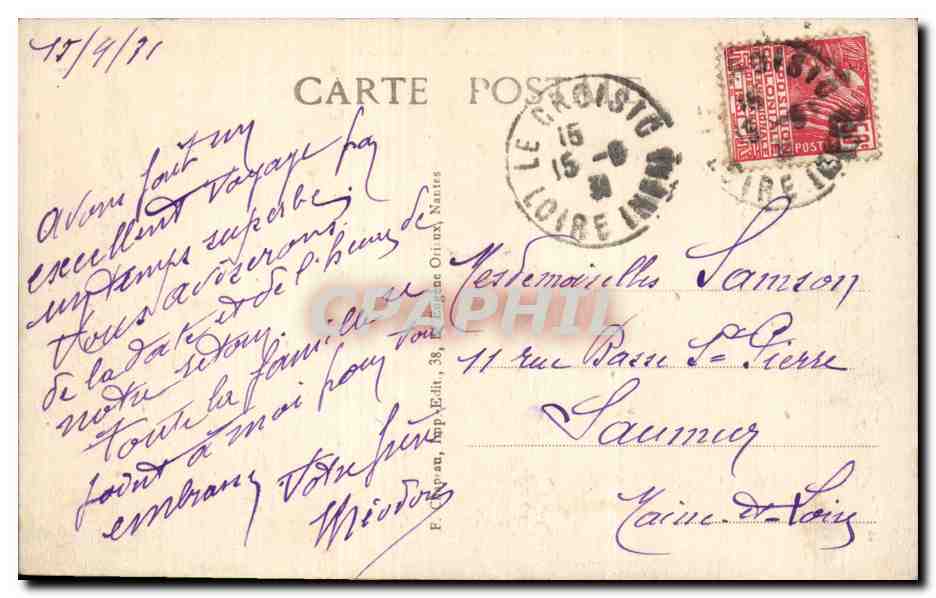 15/9/31
CARTE POSTALE
LE CROISIC
15
15 - 9
31
LOIRE INFRE
EXPOSITION
COLONIALE
POSTES
50c
Avons fait un
excellent voyage par
un temps superbe,
Vous aviserons
de la date et de l'heure de
notre retour.
Toute la famille se
joint à moi pour vous
embrasser Votre frère
F. Chapeau, Imp.-Edit., 38, Eugène Orieux, Nantes
CPAPHIL
Mesdemoiselles Samson
11 rue Basse St Pierre
Saumur
Maine-et-Loire